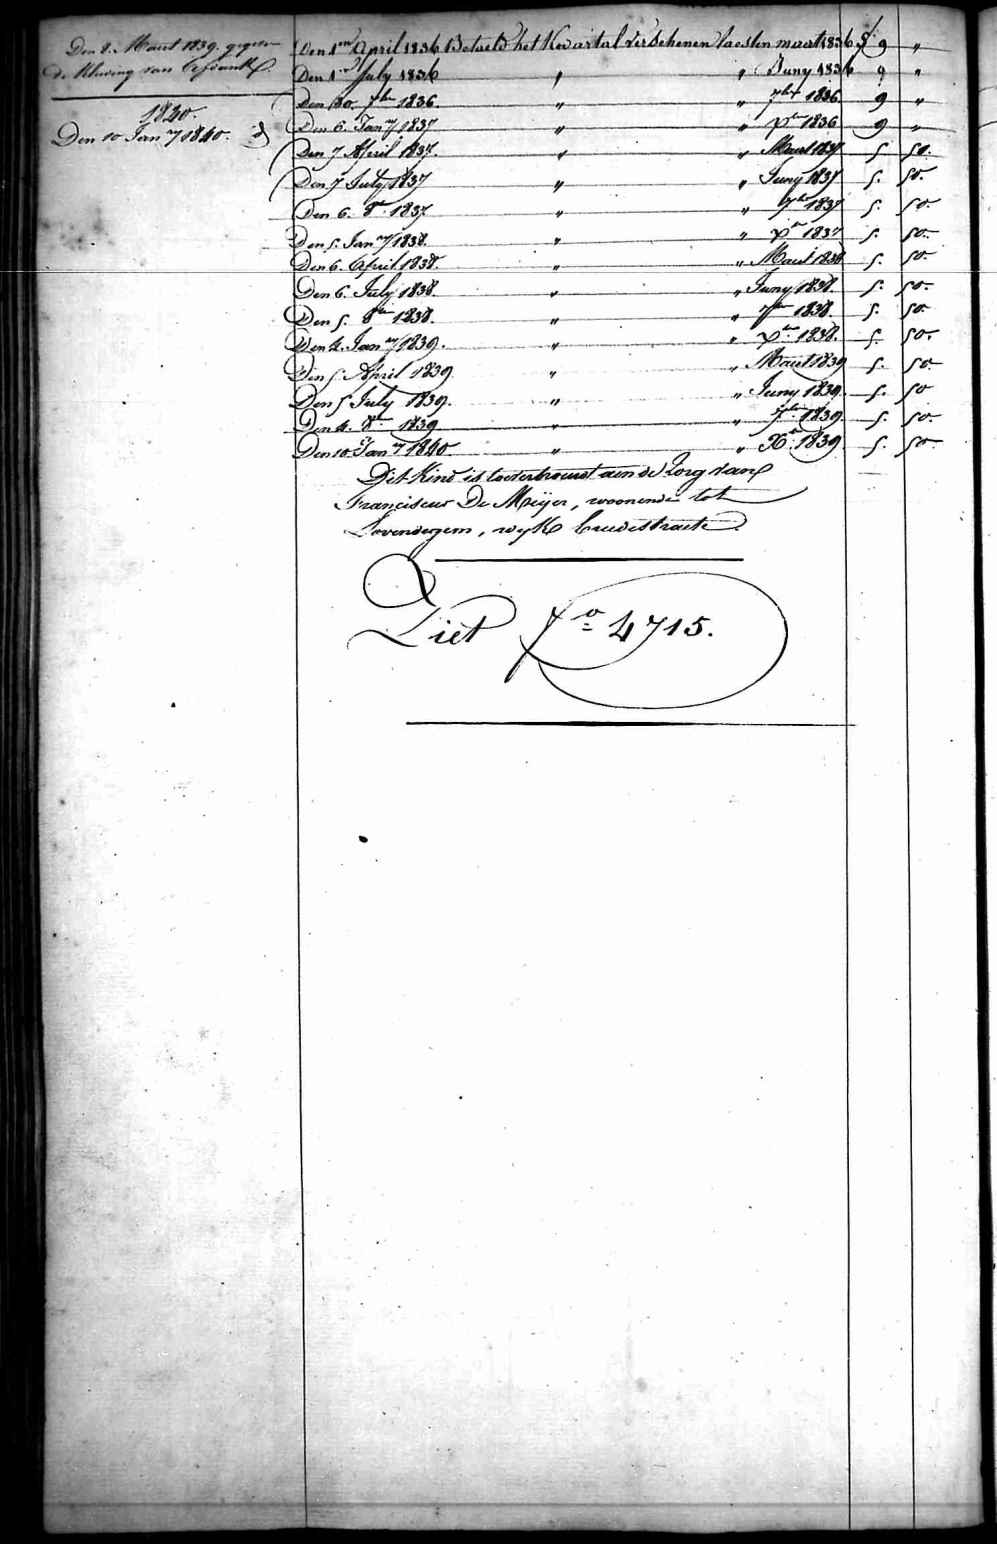 Den 8. Maert 1839. gegeven
de kleeding van
1840.
Den 10 Jan.ry 1840.
Den 1en April 1836 Betaeld het Kwartal verschenen laesten maart 1836 9 "
Den 1en July 1836 " " Juny 1836 9 "
Den 30. 7ber 1836. " " 7ber 1836 9 "
Den 6. Janry 1837 " " Xber 1836 9 "
Den 7 April 1837. " " Maert 1837 5. 50.
Den 7 July 1837 " " Juny 1837 5. 50.
Den 6. 8er 1837. " " 7ber 1837 5. 50.
Den 5. Janry 1838. " " Xer 1837 5. 50.
Den 6. April 1838. " " Maert 1838 5. 50.
Den 6. July 1838. " " Juny 1838. 5. 50.
Den 5. 8er 1838. " " 7ber 1838. 5. 50.
Den 4. Janry 1839. " " Xber 1838. 5. 50.
Den 5. April 1839 " " Maert 1839 5. 50.
Den 5 July 1839. " " Juny 1839. 5. 50
Den 4. 8er 1839 " " 7ber 1839. 5. 50.
Den 10. Janry 1840. " " Xer 1839. 5. 50.
Dit Kind is toevertrouwt aen de Zorg van
Franciscus De Meijer, woonende tot
Lovendegem, wyk
Ziet fo 4715.